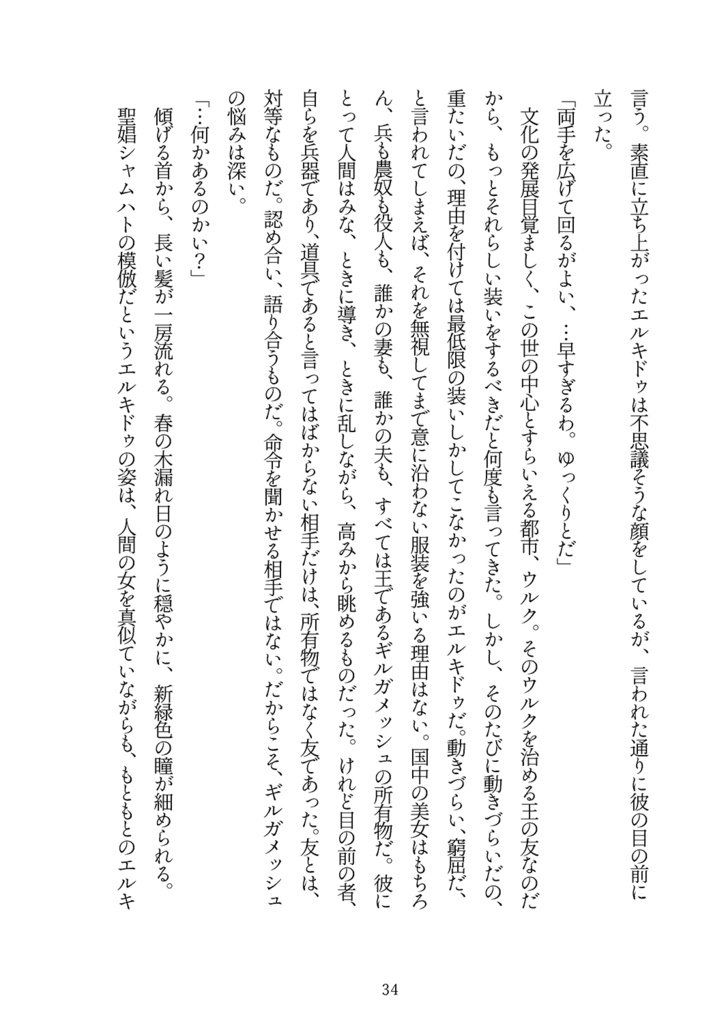 言う。素直に立ち上がったエルキドゥは不思議そうな顔をしているが、言われた通りに彼の目の前に
立った。
「両手を広げて回るがよい、…早すぎるわ。ゆっくりとだ」
文化の発展目覚ましく、この世の中心とすらいえる都市、ウルク。そのウルクを治める王の友なのだ
から、もっとそれらしい装いをするべきだと何度も言ってきた。しかし、そのたびに動きづらいだの、
重たいだの、理由を付けては最低限の装いしかしてこなかったのがエルキドゥだ。動きづらい、窮屈だ、
と言われてしまえば、それを無視してまで意に沿わない服装を強いる理由はない。国中の美女はもちろ
ん、兵も農奴も役人も、誰かの妻も、誰かの夫も、すべては王であるギルガメッシュの所有物だ。彼に
とって人間はみな、ときに導き、ときに乱しながら、高みから眺めるものだった。けれど目の前の者、
自らを兵器であり、道具であると言ってはばからない相手だけは、所有物ではなく友であった。友とは、
対等なものだ。認め合い、語り合うものだ。命令を聞かせる相手ではない。だからこそ、ギルガメッシュ
の悩みは深い。
「…何かあるのかい？」
傾げる首から、長い髪が一房流れる。春の木漏れ日のように穏やかに、新緑色の瞳が細められる。
聖娼シャムハトの模倣だというエルキドゥの姿は、人間の女を真似ていながらも、もともとのエルキ
34